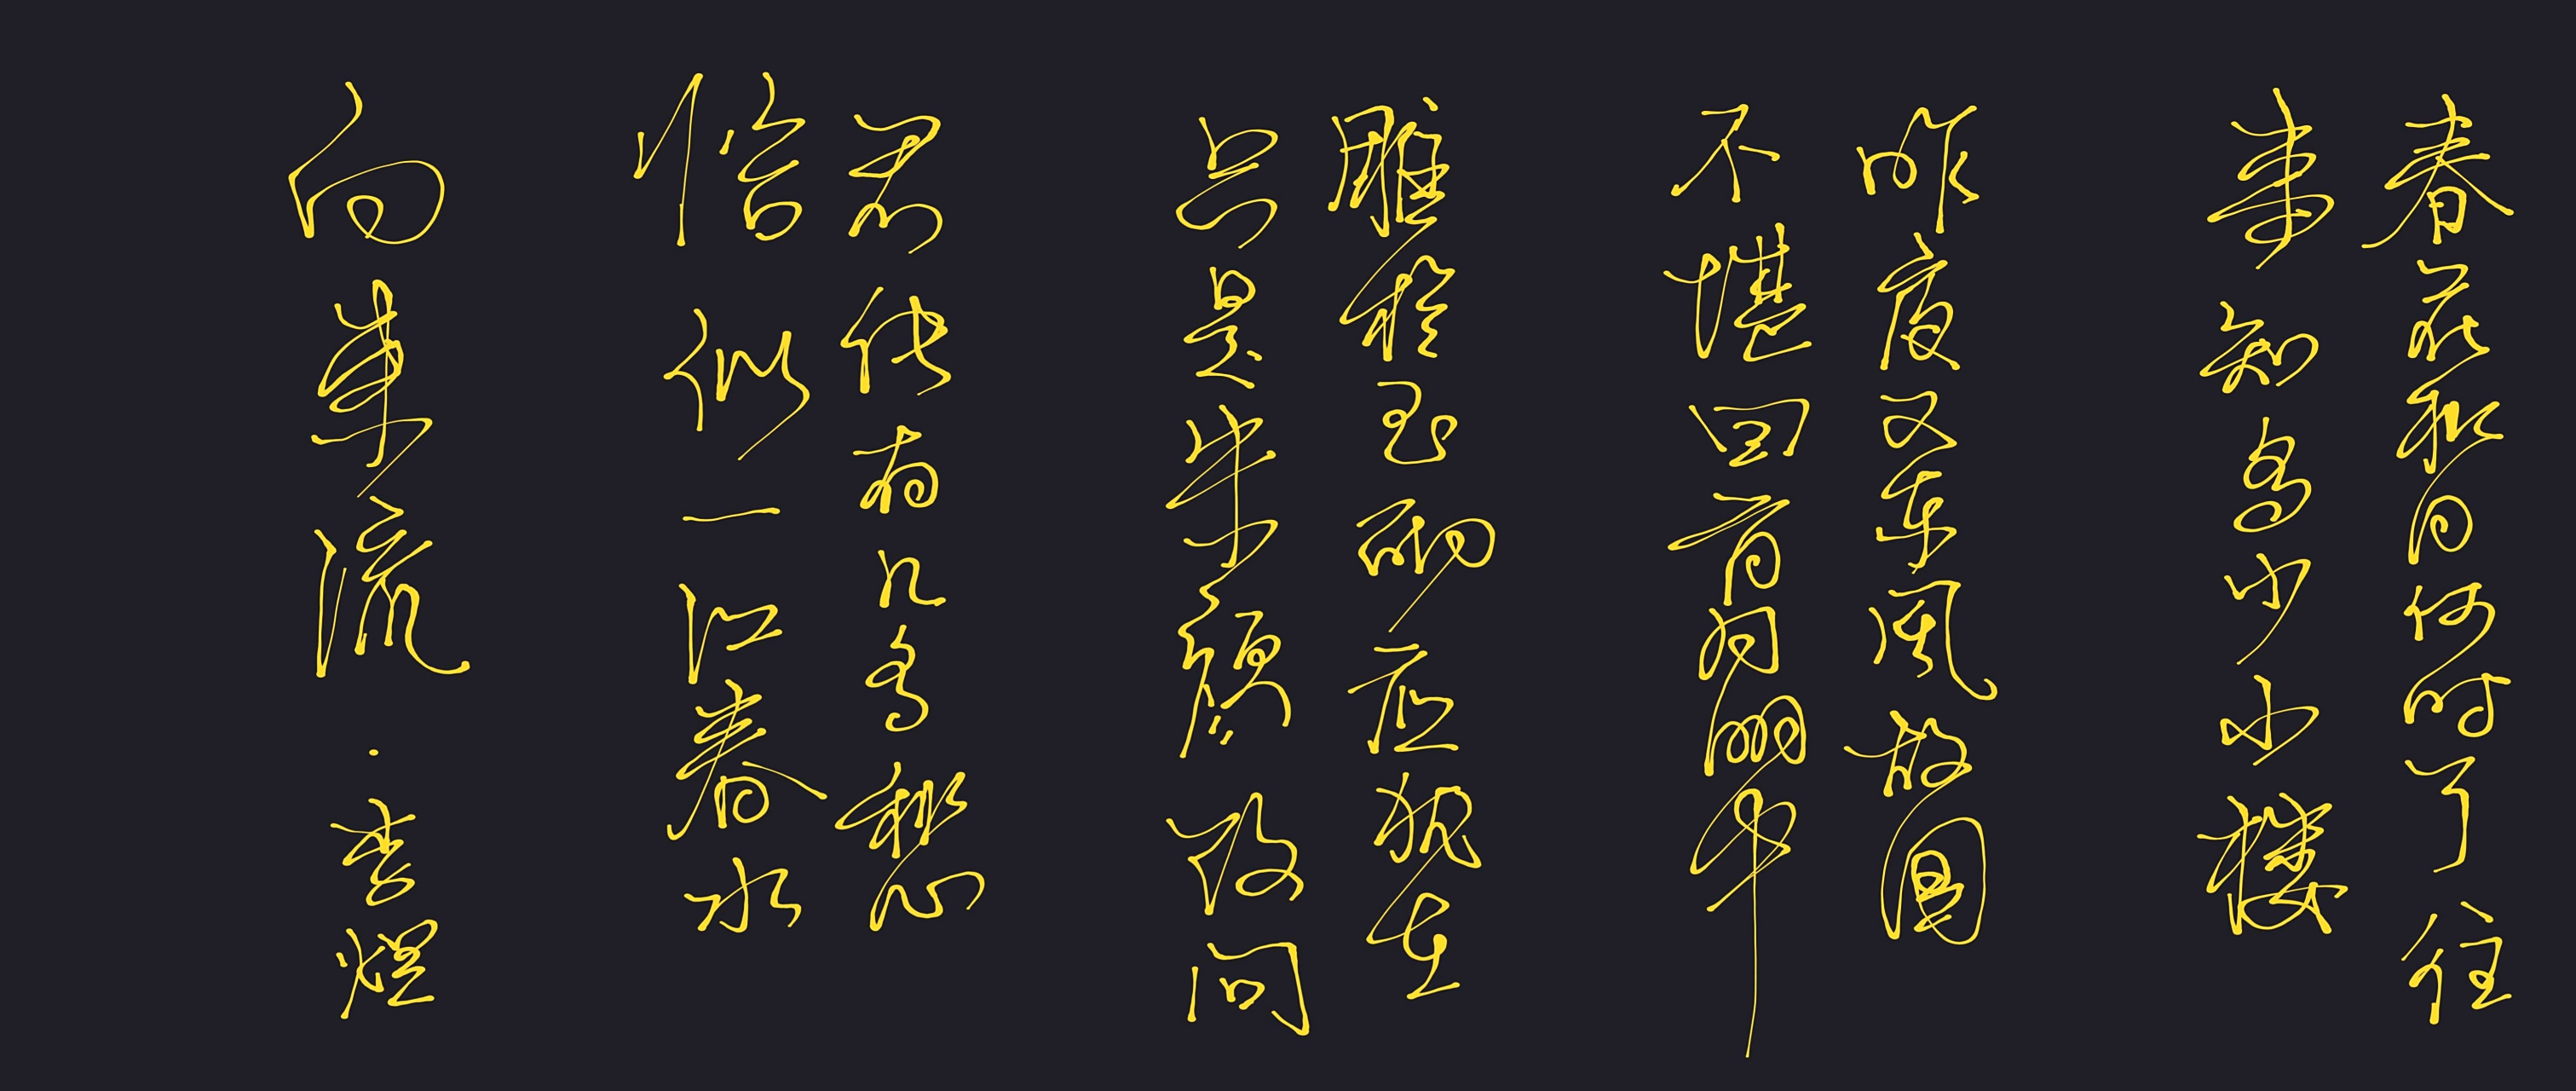 春花秋月何时了往
事知多少小楼
昨夜又东风故国
不堪回首月明中
雕栏玉砌应犹在
只是朱颜改问
君能有几多愁
恰似一江春水
向东流·李煜